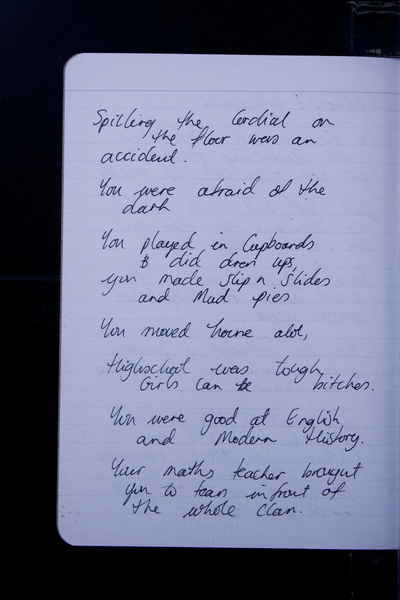 Spilling the Cordial on
the floor was an
accident.
You were afraid of the
dark
You played in Cupboards
& did dress ups,
you made slip n slides
and Mud pies
You moved house alot,
Highschool was tough
Girls can be bitches.
You were good at English
and Modern History.
Your maths teacher brought
you to tears infront of
the whole class.